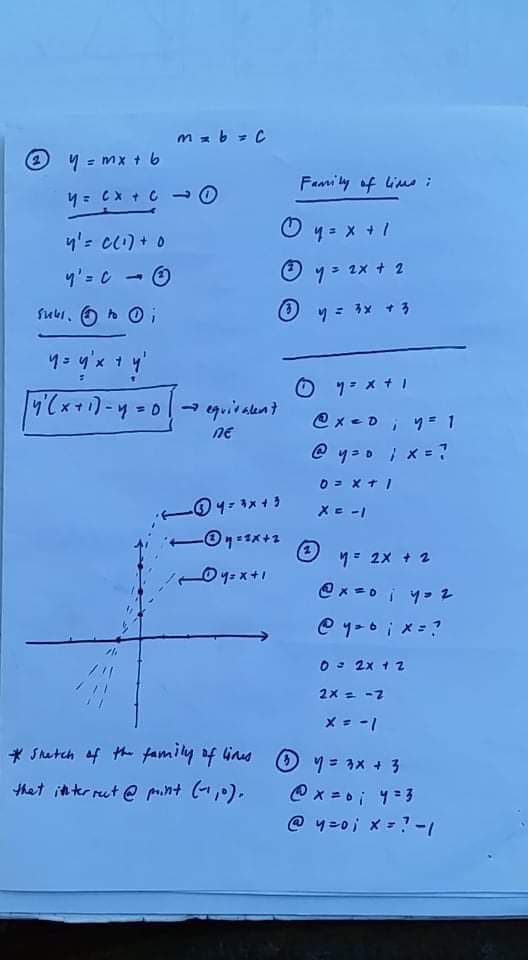 m = b = c
② y = mx + b
y = cx + c → ①
y' = c(1) + 0
y' = c → ②
subs. ② to ① ;
y = y'x + y'
y'(x+1) - y = 0 → equivalent
DE
Family of lines :
① y = x + 1
② y = 2x + 2
③ y = 3x + 3
① y = x + 1
@ x = 0 ; y = 1
@ y = 0 ; x = ?
0 = x + 1
x = -1
② y = 2x + 2
@ x = 0 ; y = 2
@ y = 0 ; x = ?
0 = 2x + 2
2x = -2
x = -1
③ y = 3x + 3
@ x = 0 ; y = 3
@ y = 0 ; x = ? -1
③ y = 3x + 3
② y = 2x + 2
① y = x + 1
* Sketch of the family of lines
that intersect @ point (-1,0).